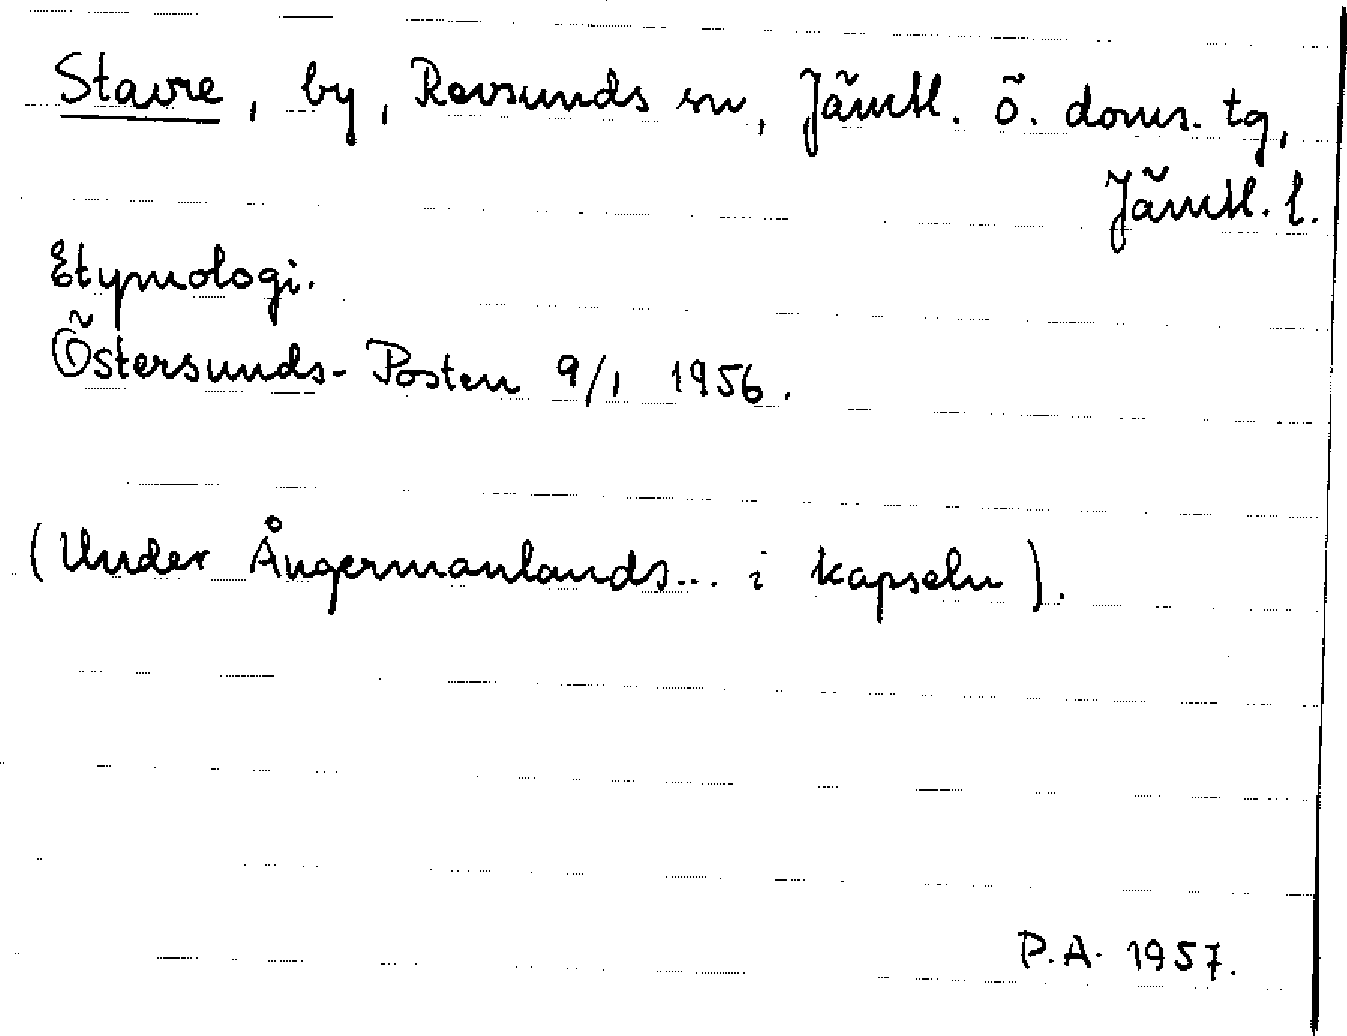 Stavre, by, Revsunds sn, Jämtl. ö. doms. tg,
Jämtl. l.
Etymologi.
Östersunds-Posten 9/1 1956.
(Under Ångermanlands... i kapseln).
P.A. 1957.